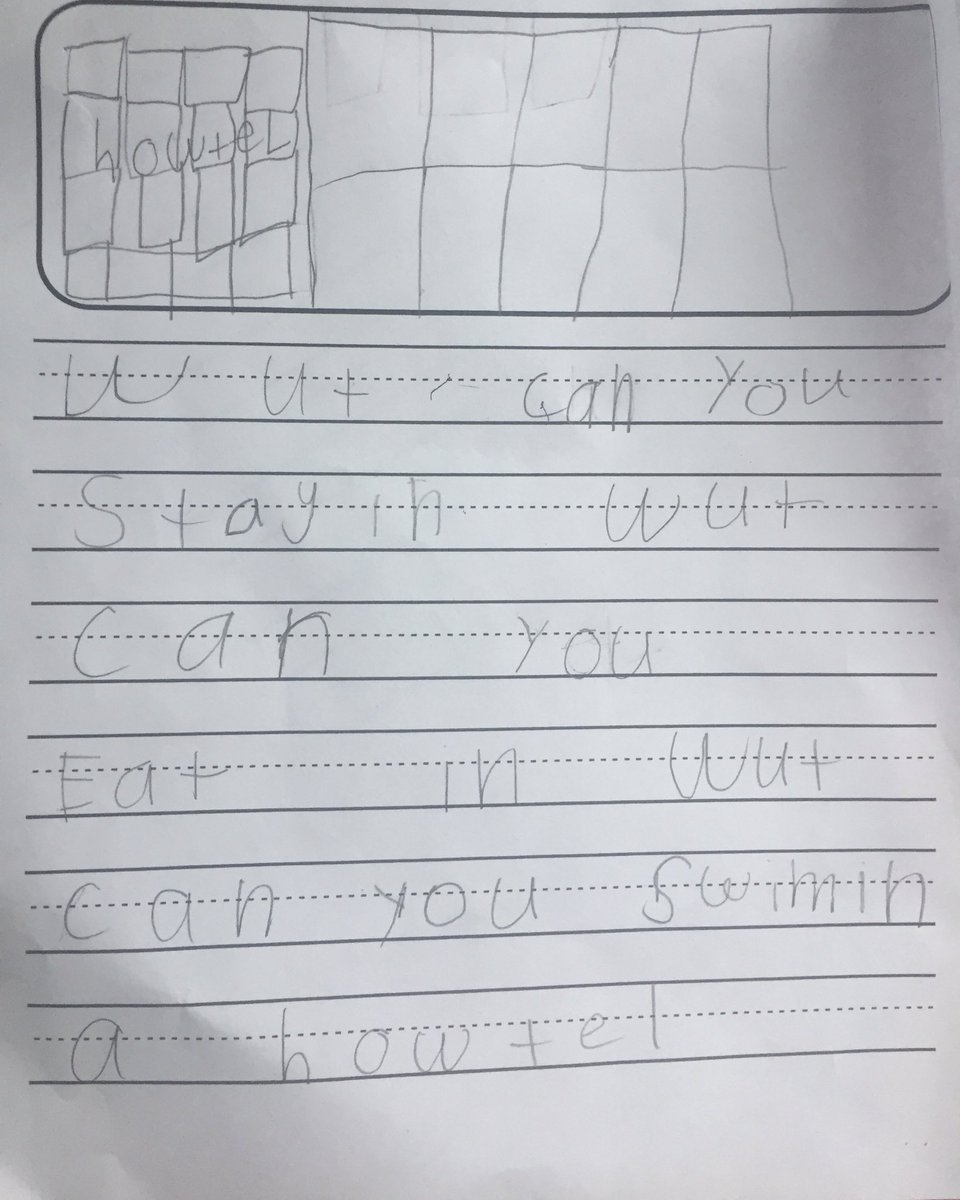 howtel
Wut can you
Stay in wut
can you
Eat in Wut
can you Swimin
a howtel